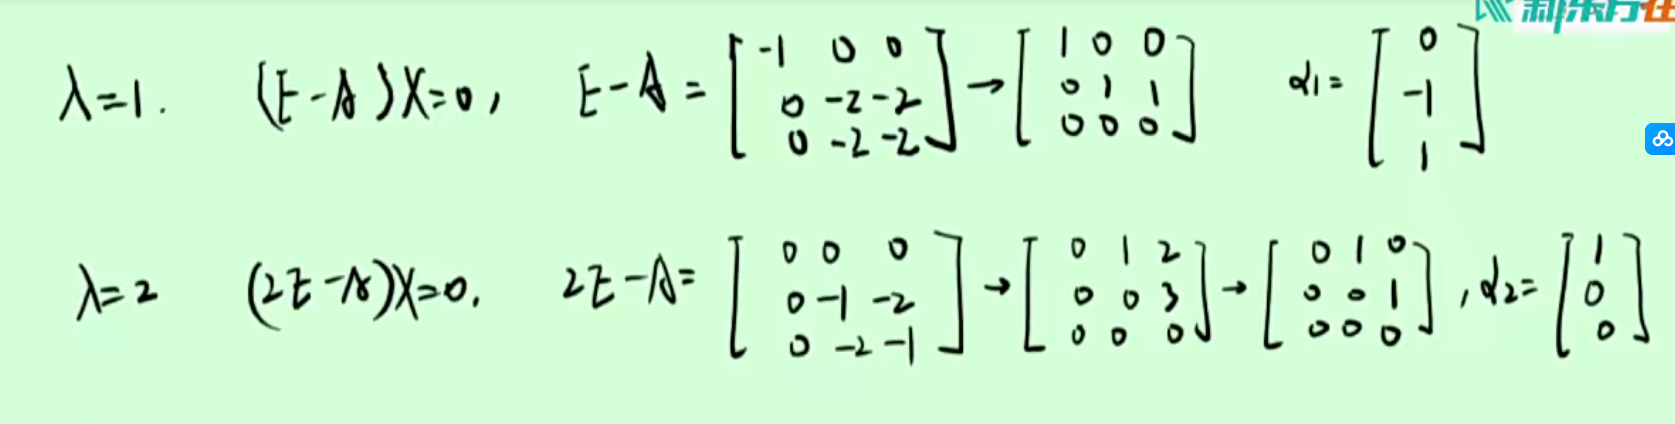 新东方在
λ=1. (E-A)X=0, E-A= [-1 0 0; 0 -2 -2; 0 -2 -2] → [1 0 0; 0 1 1; 0 0 0] α1= [0; -1; 1]
λ=2 (2E-A)X=0. 2E-A= [0 0 0; 0 -1 -2; 0 -2 -1] → [0 1 2; 0 0 3; 0 0 0] → [0 1 0; 0 0 1; 0 0 0], α2= [1; 0; 0]